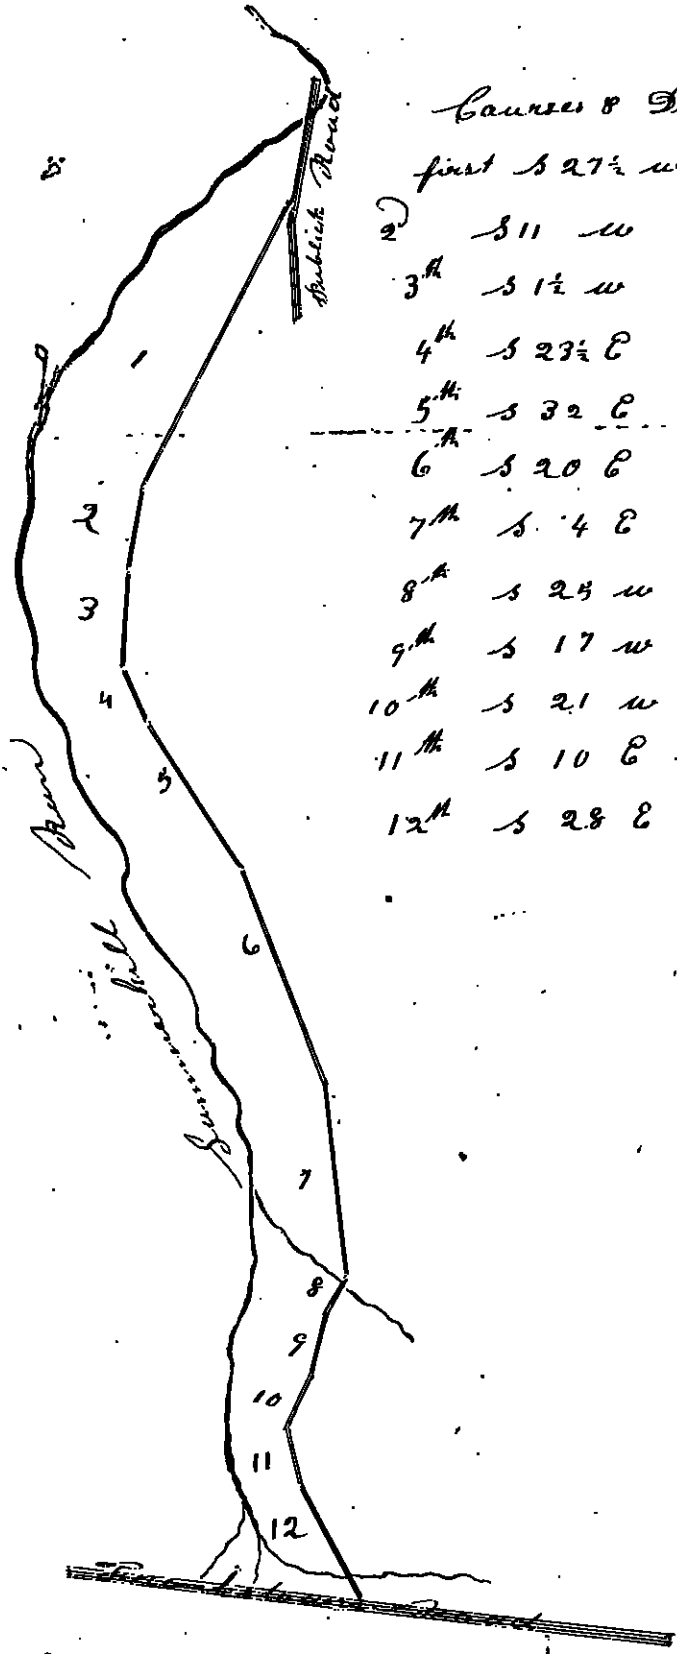 Courses & D
first S 27½ w
2 S 11 w
3th S 1½ w
4th S 23½ E
5th S 32 E
6th S 20 E
7th S 4 E
8th S 25 w
9th S 17 w
10th S 21 w
11th S 10 E
12th S 28 E
Publick Road
1
2
3
4
5
6
7
8
9
10
11
12
Summerhill Run
Road